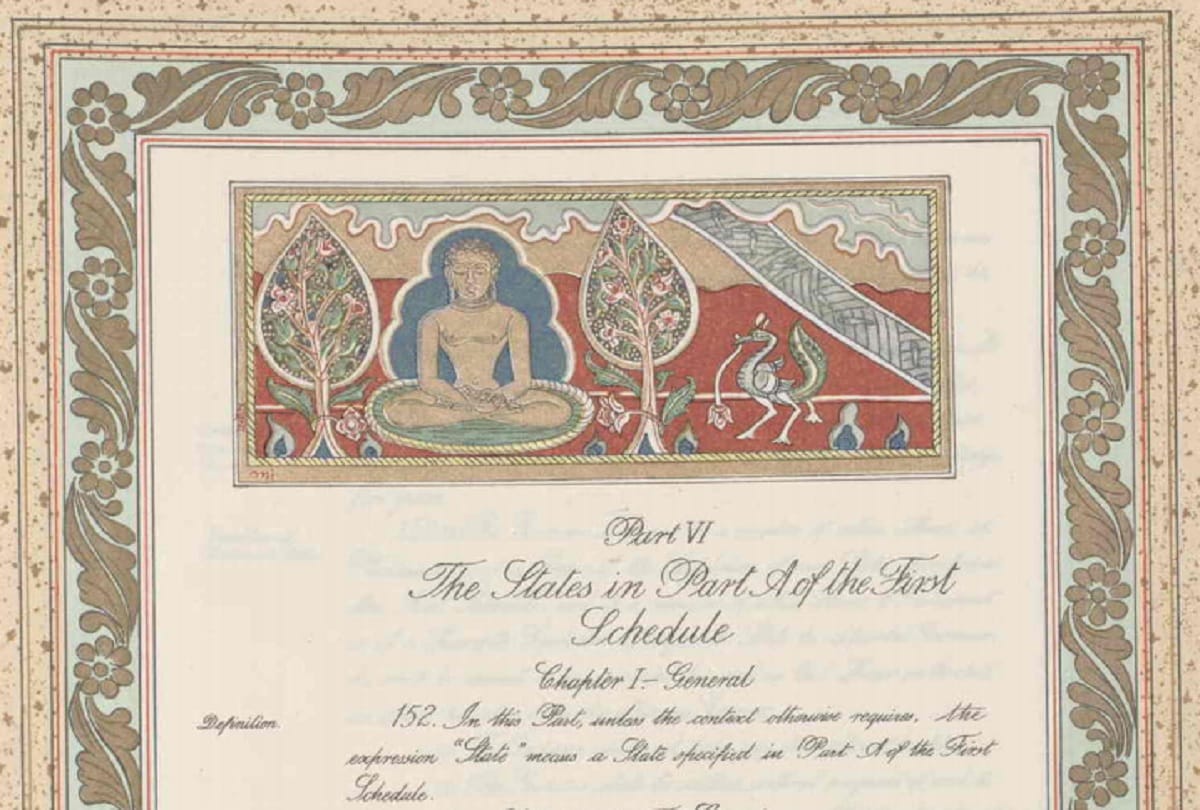 Part VI
The States in Part A of the First
Schedule
Chapter I - General
Definition.
152. In this Part, unless the context otherwise requires, the
expression "State" means a State specified in Part A of the First
Schedule.